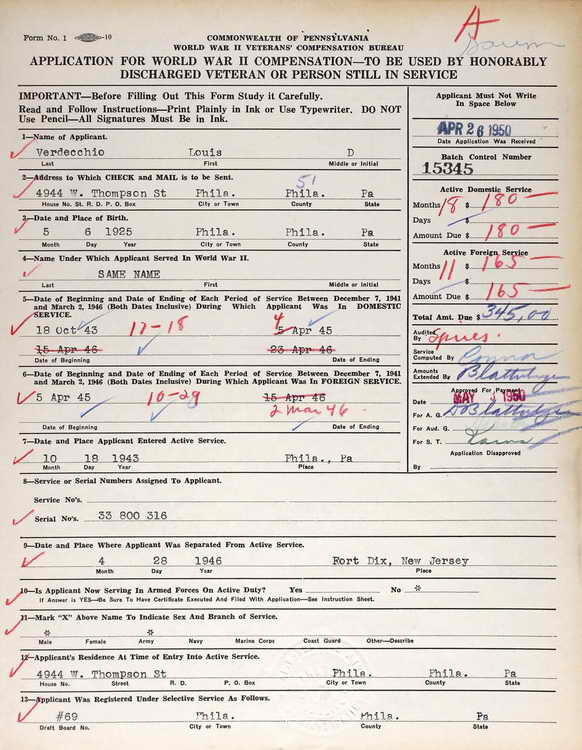 Form No. 1 -10
COMMONWEALTH OF PENNSYLVANIA
WORLD WAR II VETERANS' COMPENSATION BUREAU
A
APPLICATION FOR WORLD WAR II COMPENSATION—TO BE USED BY HONORABLY
DISCHARGED VETERAN OR PERSON STILL IN SERVICE
IMPORTANT—Before Filling Out This Form Study it Carefully.
Read and Follow Instructions—Print Plainly in Ink or Use Typewriter. DO NOT
Use Pencil—All Signatures Must Be in Ink.
Applicant Must Not Write
In Space Below
APR 26 1950
Date Application Was Received
Batch Control Number
15345
1—Name of Applicant.
Verdecchio Louis D
Last First Middle or Initial
2—Address to Which CHECK and MAIL is to be Sent.
51
4944 W. Thompson St Phila. Phila. Pa
House No. St. R. D. P. O. Box City or Town County State
Active Domestic Service
Months 18 $ 180 —
Days $
Amount Due $ 180 —
3—Date and Place of Birth.
5 6 1925 Phila. Phila. Pa
Month Day Year City or Town County State
4—Name Under Which Applicant Served In World War II.
SAME NAME
Last First Middle or Initial
Active Foreign Service
Months 11 $ 165 —
Days $
Amount Due $ 165 —
Total Amt. Due $ 345.00
5—Date of Beginning and Date of Ending of Each Period of Service Between December 7, 1941
and March 2, 1946 (Both Dates Inclusive) During Which Applicant Was In DOMESTIC
SERVICE.
18 Oct 43 17-18 4 5 Apr 45
15 Apr 46 23 Apr 46
Date of Beginning Date of Ending
Audited
By
Service
Computed By Connor
Amounts
Extended By
Approved For Payment
Date MAY 3 1950
For A. G.
For Aud. G.
For S. T.
Application Disapproved
By
6—Date of Beginning and Date of Ending of Each Period of Service Between December 7, 1941
and March 2, 1946 (Both Dates Inclusive) During Which Applicant Was In FOREIGN SERVICE.
5 Apr 45 10-29 15 Apr 46
2 Mar 46
Date of Beginning Date of Ending
7—Date and Place Applicant Entered Active Service.
10 18 1943 Phila., Pa
Month Day Year Place
8—Service or Serial Numbers Assigned To Applicant.
Service No's.
Serial No's. 33 800 316
9—Date and Place Where Applicant Was Separated From Active Service.
4 28 1946 Fort Dix, New Jersey
Month Day Year Place
10—Is Applicant Now Serving In Armed Forces On Active Duty? Yes No *
If Answer is YES—Be Sure To Have Certificate Executed And Filed With Application—See Instruction Sheet.
11—Mark "X" Above Name To Indicate Sex And Branch of Service.
* *
Male Female Army Navy Marine Corps Coast Guard Other—Describe
12—Applicant's Residence At Time of Entry Into Active Service.
4944 W. Thompson St Phila. Phila. Pa
House No. Street R. D. P. O. Box City or Town County State
13—Applicant Was Registered Under Selective Service As Follows.
#69 Phila. Phila. Pa
Draft Board No. City or Town County State